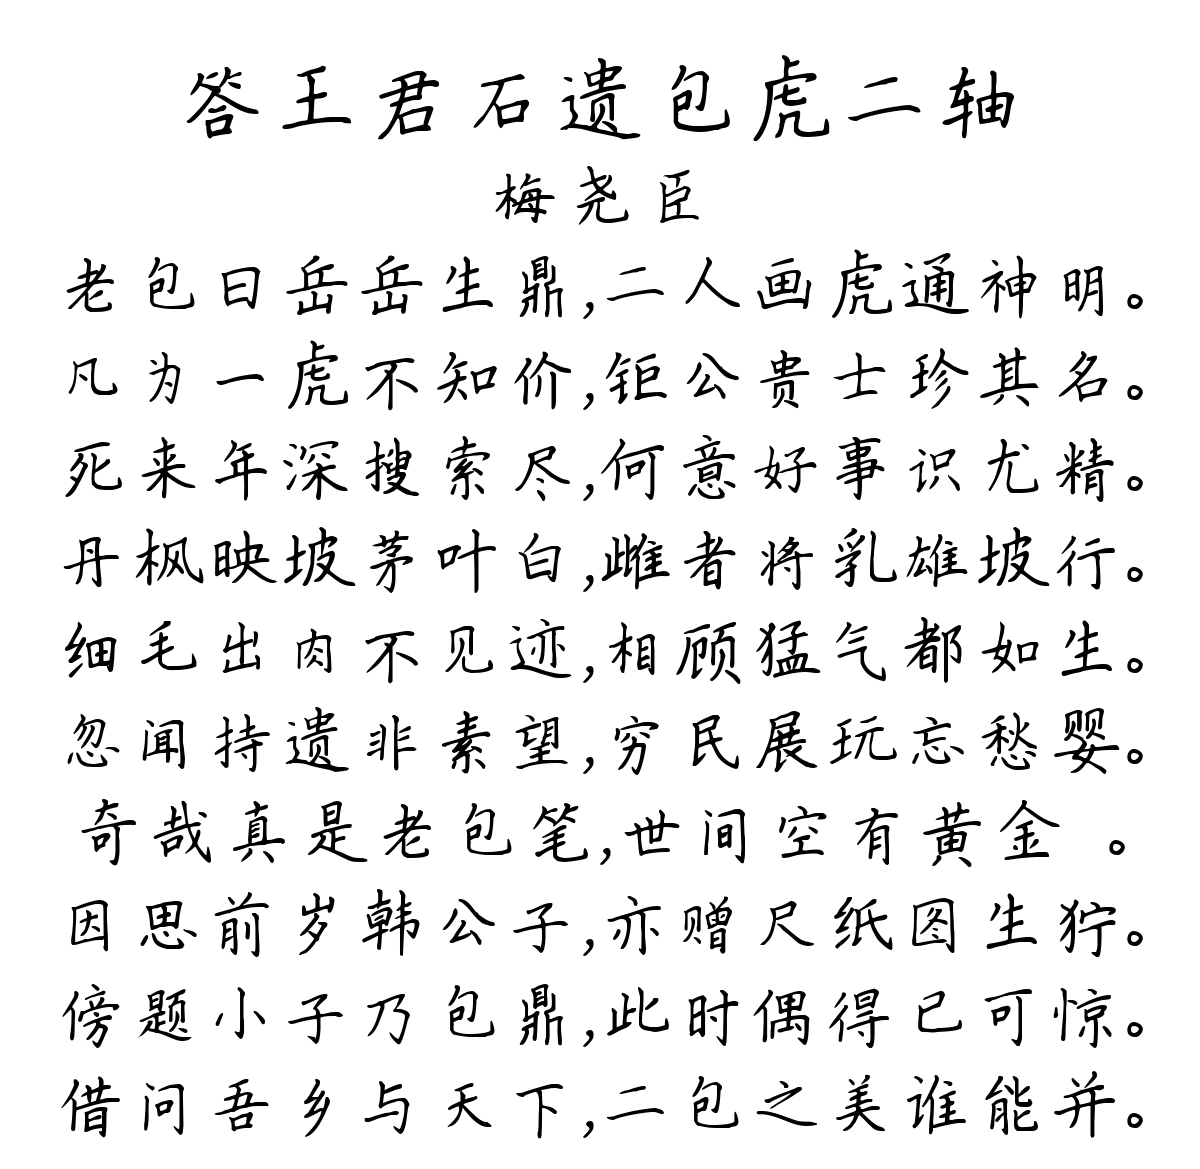 答王君石遗包虎二轴
梅尧臣
老包曰岳岳生鼎,二人画虎通神明。
凡为一虎不知价,钜公贵士珍其名。
死来年深搜索尽,何意好事识尤精。
丹枫映坡茅叶白,雌者将乳雄坡行。
细毛出肉不见迹,相顾猛气都如生。
忽闻持遗非素望,穷民展玩忘愁婴。
奇哉真是老包笔,世间空有黄金 。
因思前岁韩公子,亦赠尺纸图生狞。
傍题小子乃包鼎,此时偶得已可惊。
借问吾乡与天下,二包之美谁能并。